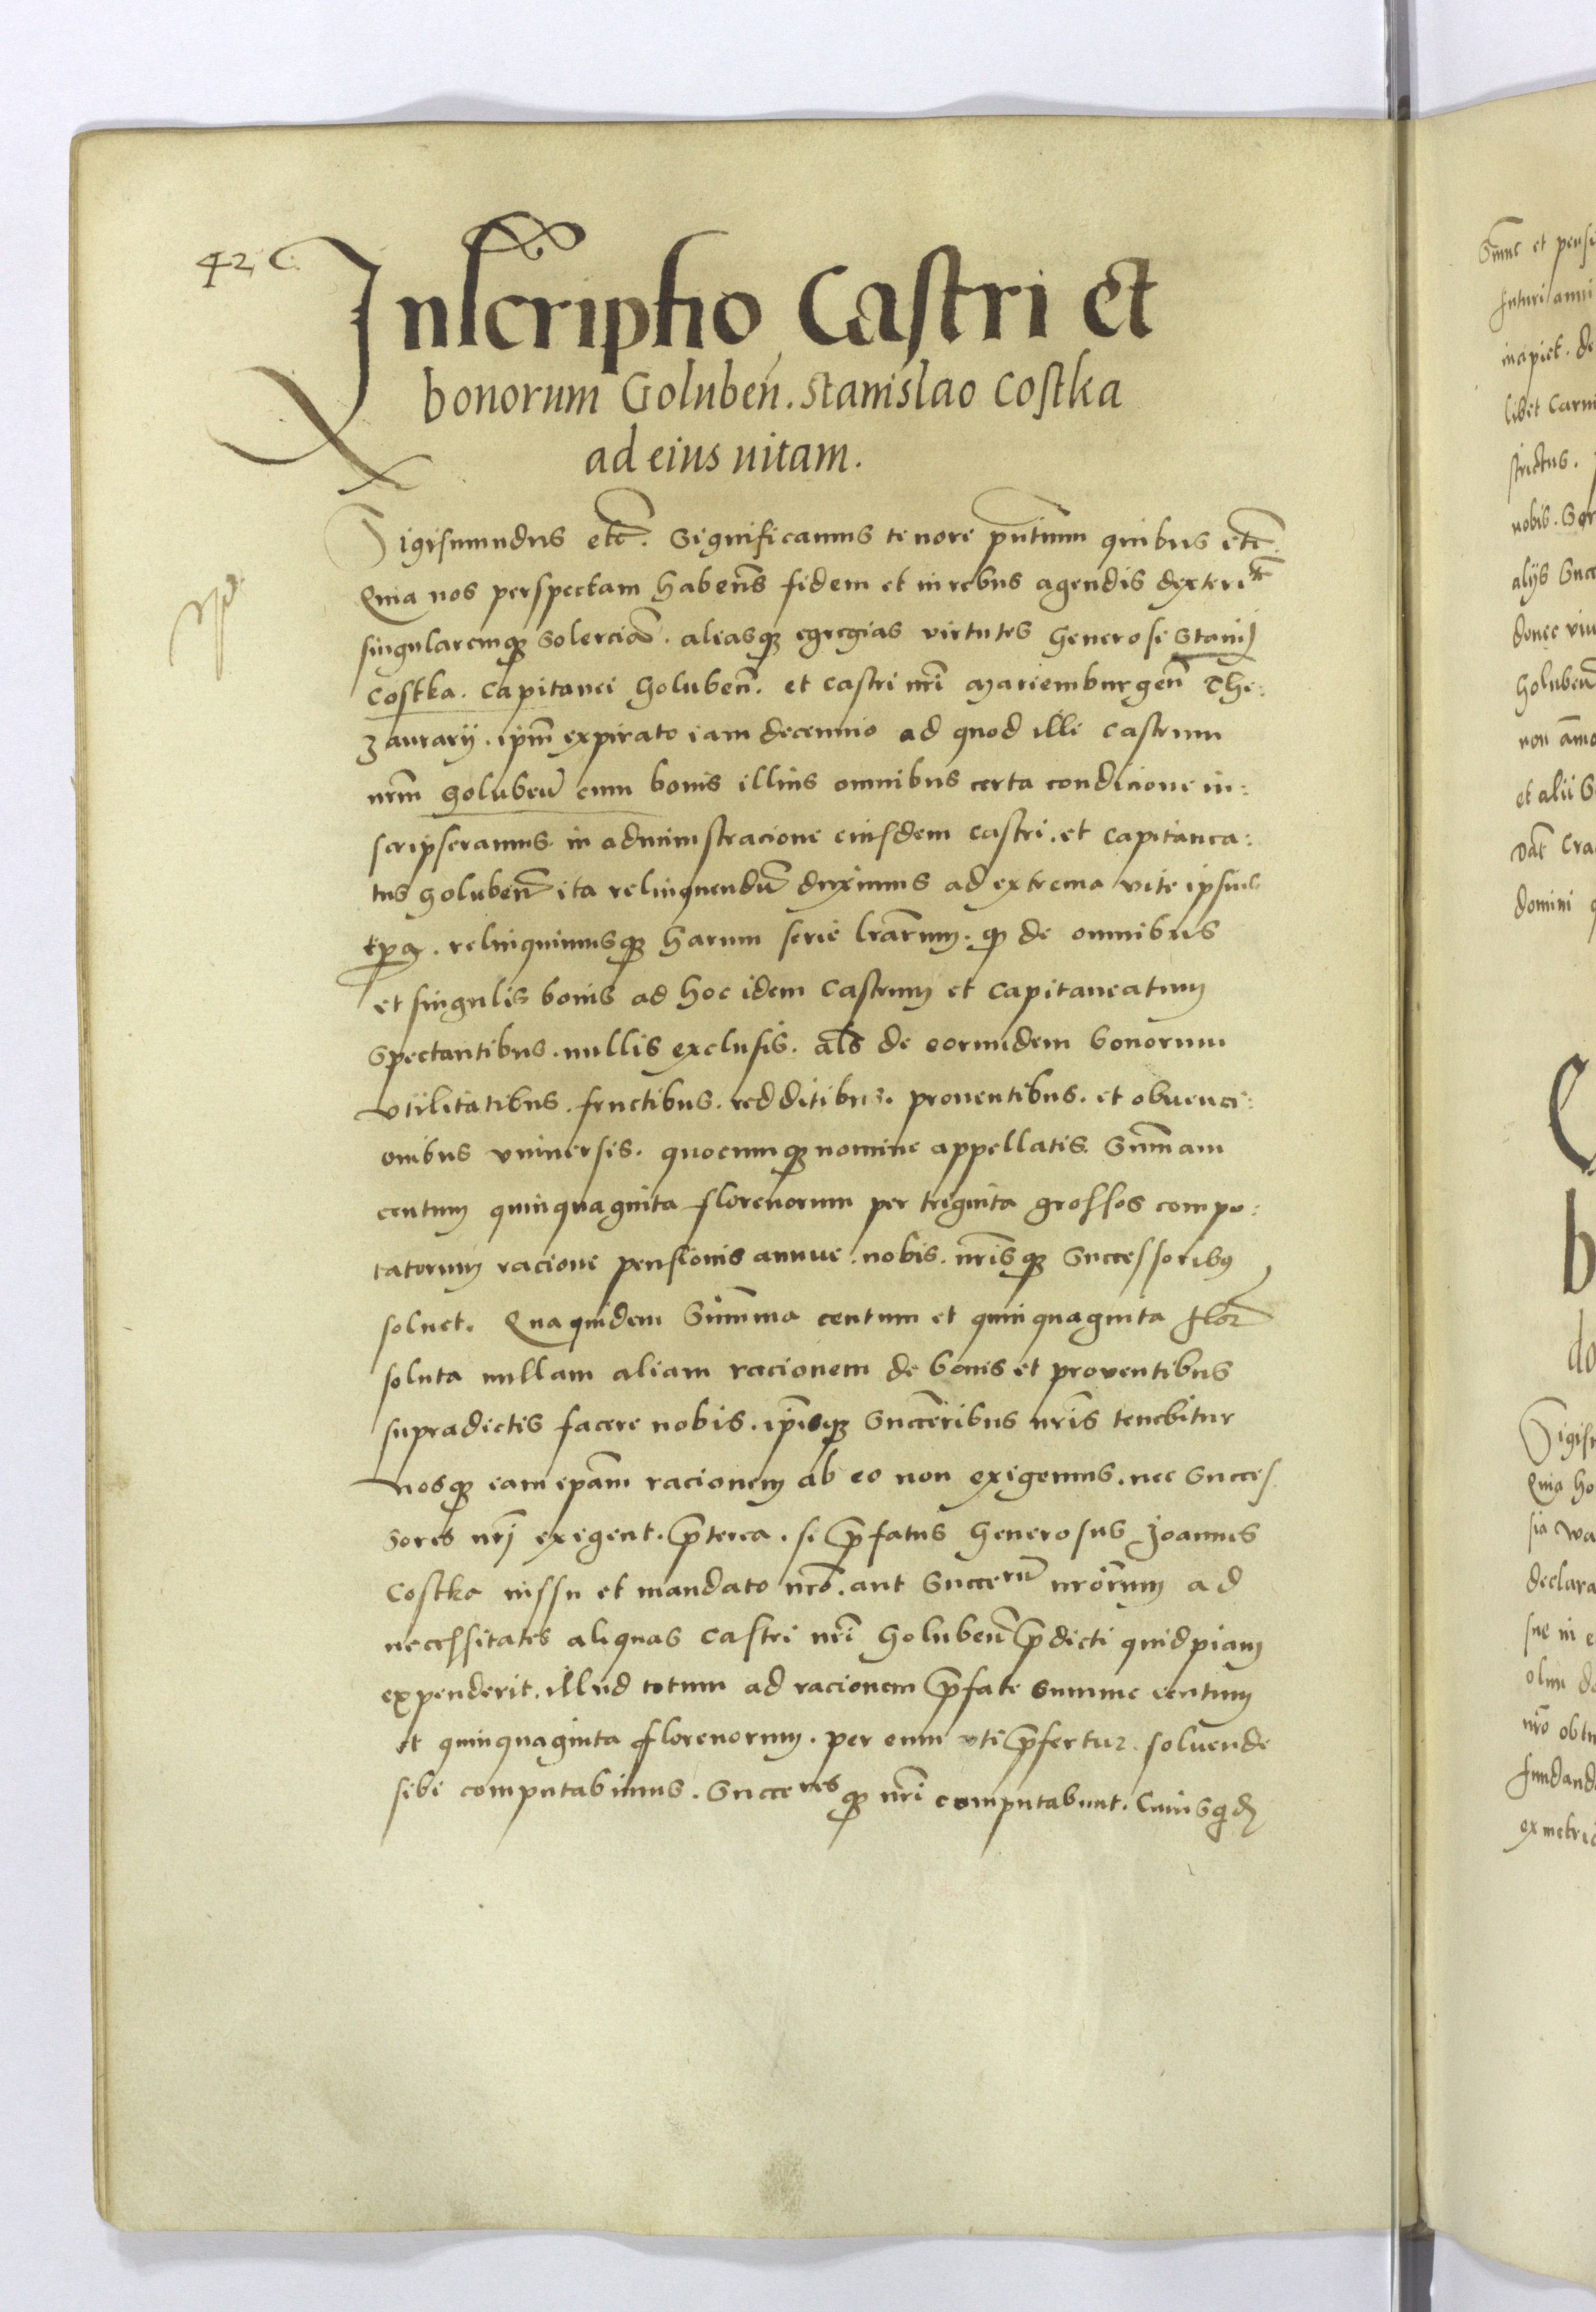 42 C.
Inscriptio Castri et
bonorum Goluben̄. Stanislao Costka
ad eius uitam.
Sigismundus etc̄. Significamus tenore pn̄tium quibus etc̄.
Quia nos perspectam haben̄s fidem et in rebus agendis dexterit̄e
singularemq̨ solerciā. aliasq̨ egregias virtutes Generosi Stanisl
Costka. Capitanei Goluben̄. et castri nr̄i Mariemburgen̄ The:
zaurarij. ip̄m expirato iam decennio ad quod illi castrum
nr̄m Goluben̄ cum bonis illius omnibus certa condicione in:
scripseramus in administracione eiusdem castri. et capitanea:
tus Goluben̄ ita relinquendū duximus ad extrema vite ipsius
tp̄a. relinquimusq̨ harum serie lr̄arum. q̨ de omnibus
et singulis bonis ad hoc idem castrum et capitaneatum
spectantibus. nullis exclusis. al̄s de eorundem bonorum
vtilitatibus. fructibus. redditibus. prouentibus. et obuenci:
onibus vniuersis. quocumq̨ nomine appellatis. Sum̄am
centum quinquaginta florenorum per triginta grossos compu:
tatorum racione pensionis annue. nobis. nr̄isq̨ Successoribus
soluet. Qua quidem Sum̄ma centum et quinquaginta flor̄
soluta nullam aliam racionem de bonis et prouentibus
supradictis facere nobis. ip̄isq̨ Succeribus nr̄is tenebitur
nosq̨ eam ip̄am racionem ab eo non exigemus. nec Succes
sores nr̄j exigent. p̄terea. si p̄fatus Generosus Joannes
Costka iussu et mandato nr̄o. aut Successorū nr̄orum ad
necessitates aliquas castri nr̄i Goluben̄ p̄dicti quidpiam
expenderit. illud totum ad racionem p̄fate summe centum
et quinquaginta florenorum. per eum vti p̄fertur. soluende
sibi computabimus. Succeresq̨ nr̄i computabunt. Cuius qd